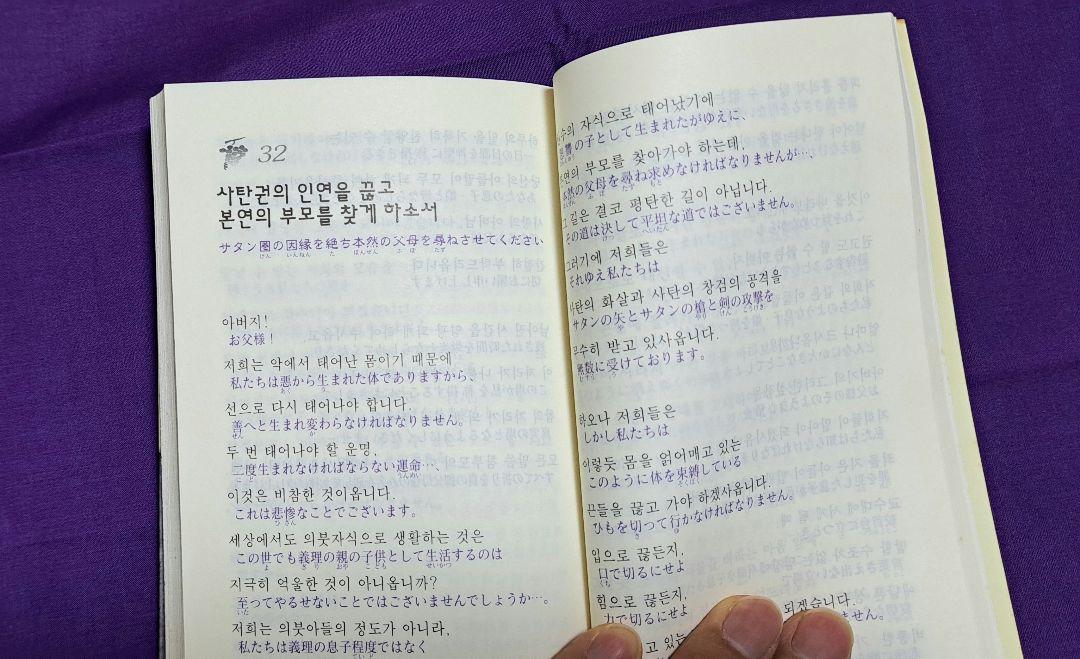 32
사탄권의 인연을 끊고
본연의 부모를 찾게 하소서
サタン圏の因縁を絶ち本然の父母を尋ねさせてください
아버지!
お父様！
저희는 악에서 태어난 몸이기 때문에
私たちは悪から生まれた体でありますから、
선으로 다시 태어나야 합니다.
善へと生まれ変わらなければなりません。
두 번 태어나야 할 운명,
二度生まれなければならない運命…、
이것은 비참한 것이옵니다.
これは悲惨なことでございます。
세상에서도 의붓자식으로 생활하는 것은
この世でも義理の親の子供として生活するのは
지극히 억울한 것이 아니옵니까?
至ってやるせないことではございませんでしょうか…。
저희는 의붓아들의 정도가 아니라,
私たちは義理の息子程度ではなく
수의 자식으로 태어났기에
讐の子として生まれたがゆえに、
연의 부모를 찾아가야 하는데,
然の父母を尋ね求めなければなりませんが…、
그 길은 결코 평탄한 길이 아닙니다.
その道は決して平坦な道ではございません。
그러기에 저희들은
それゆえ私たちは
사탄의 화살과 사탄의 창검의 공격을
サタンの矢とサタンの槍と剣の攻撃を
무수히 받고 있사옵니다.
無数に受けております。
하오나 저희들은
しかし私たちは
이렇듯 몸을 얽어매고 있는
このように体を束縛している
끈들을 끊고 가야 하겠사옵니다.
ひもを切って行かなければなりません。
입으로 끊든지,
口で切るにせよ
힘으로 끊든지, 되겠습니다.
力で切るにせよ ません。
고 있는